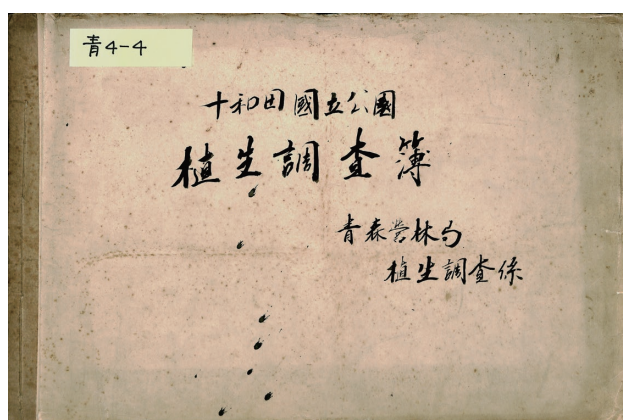 青4-4
十和田國立公園
植生調査簿
青森営林局
植生調査係